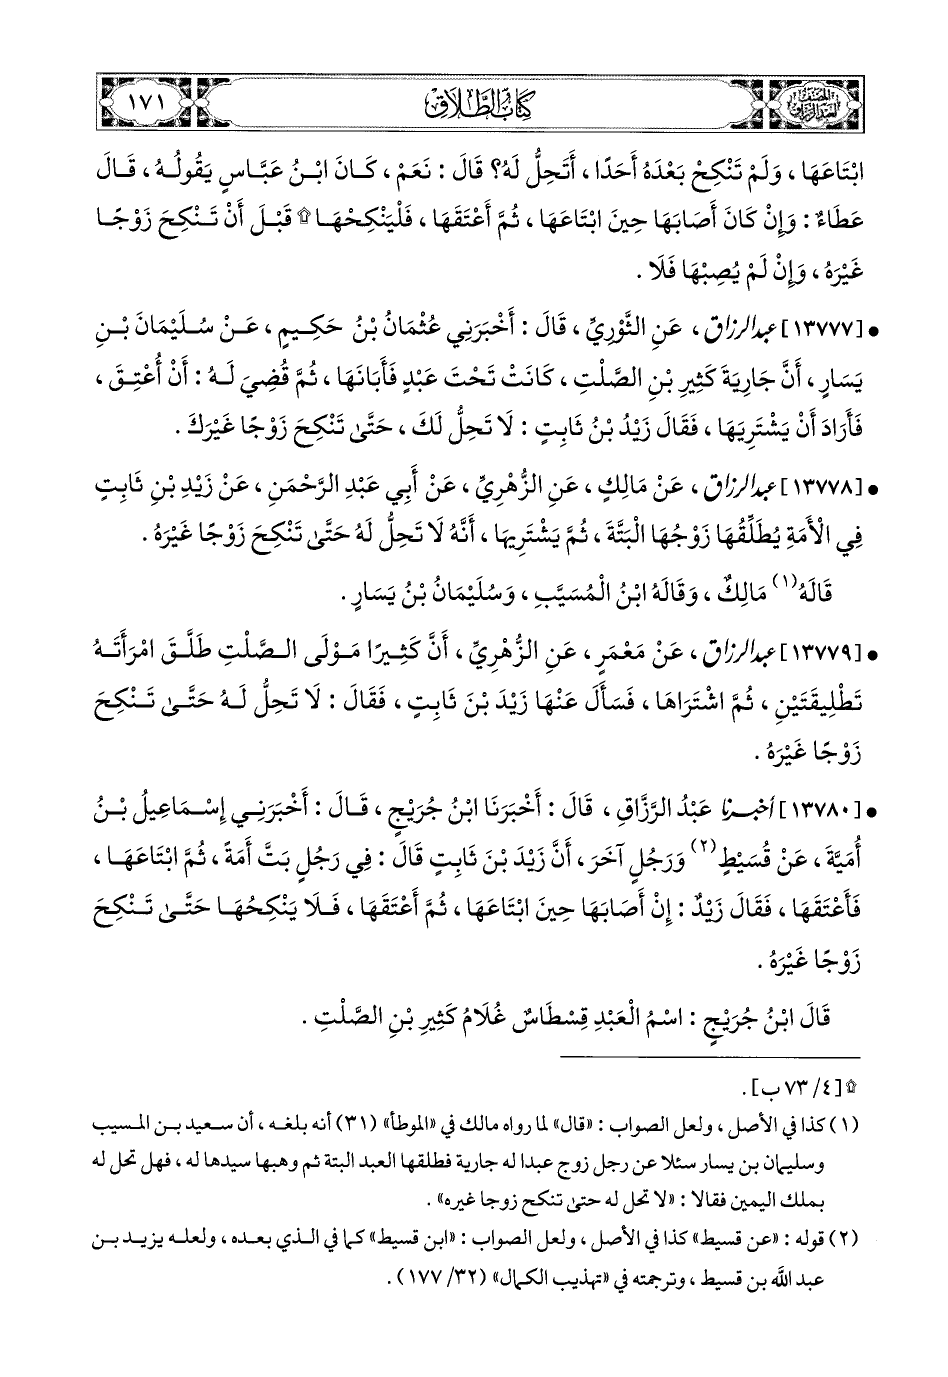 المصنف لعبد الرزاق
كتاب الطلاق
١٧١
ابْتَاعَهَا ، وَلَمْ تَنْكِحْ بَعْدَهُ أَحَدًا ، أَتَحِلُّ لَهُ؟ قَالَ : نَعَمْ ، كَانَ ابْنُ عَبَّاسٍ يَقُولُهُ ، قَالَ
عَطَاءٌ : وَإِنْ كَانَ أَصَابَهَا حِينَ ابْتَاعَهَا ، ثُمَّ أَعْتَقَهَا ، فَلْيَنْكِحْهَا ۩ قَبْلَ أَنْ تَنْكِحَ زَوْجًا
غَيْرَهُ ، وَإِنْ لَمْ يُصِبْهَا فَلَا .
• [١٣٧٧٧] عبد الرزاق ، عَنِ الثَّوْرِيِّ ، قَالَ : أَخْبَرَنِي عُثْمَانُ بْنُ حَكِيمٍ ، عَنْ سُلَيْمَانَ بْنِ
يَسَارٍ ، أَنَّ جَارِيَةَ كَثِيرِ بْنِ الصَّلْتِ ، كَانَتْ تَحْتَ عَبْدٍ فَأَبَانَهَا ، ثُمَّ قُضِيَ لَهُ : أَنْ أُعْتِقَ ،
فَأَرَادَ أَنْ يَشْتَرِيَهَا ، فَقَالَ زَيْدُ بْنُ ثَابِتٍ : لَا تَحِلُّ لَكَ ، حَتَّى تَنْكِحَ زَوْجًا غَيْرَكَ .
• [١٣٧٧٨] عبد الرزاق ، عَنْ مَالِكٍ ، عَنِ الزُّهْرِيِّ ، عَنْ أَبِي عَبْدِ الرَّحْمَنِ ، عَنْ زَيْدِ بْنِ ثَابِتٍ
فِي الْأَمَةِ يُطَلِّقُهَا زَوْجُهَا الْبَتَّةَ ، ثُمَّ يَشْتَرِيهَا ، أَنَّهُ لَا تَحِلُّ لَهُ حَتَّى تَنْكِحَ زَوْجًا غَيْرَهُ .
قَالَهُ (١) مَالِكٌ ، وَقَالَهُ ابْنُ الْمُسَيَّبِ ، وَسُلَيْمَانُ بْنُ يَسَارٍ .
• [١٣٧٧٩] عبد الرزاق ، عَنْ مَعْمَرٍ ، عَنِ الزُّهْرِيِّ ، أَنَّ كَثِيرًا مَوْلَى الصَّلْتِ طَلَّقَ امْرَأَتَهُ
تَطْلِيقَتَيْنِ ، ثُمَّ اشْتَرَاهَا ، فَسَأَلَ عَنْهَا زَيْدَ بْنَ ثَابِتٍ ، فَقَالَ : لَا تَحِلُّ لَهُ حَتَّى تَنْكِحَ
زَوْجًا غَيْرَهُ .
• [١٣٧٨٠] أخبرنا عَبْدُ الرَّزَّاقِ ، قَالَ : أَخْبَرَنَا ابْنُ جُرَيْجٍ ، قَالَ : أَخْبَرَنِي إِسْمَاعِيلُ بْنُ
أُمَيَّةَ ، عَنْ قُسَيْطٍ (٢) وَرَجُلٍ آخَرَ ، أَنَّ زَيْدَ بْنَ ثَابِتٍ قَالَ : فِي رَجُلٍ بَتَّ أَمَةً ، ثُمَّ ابْتَاعَهَا ،
فَأَعْتَقَهَا ، فَقَالَ زَيْدٌ : إِنْ أَصَابَهَا حِينَ ابْتَاعَهَا ، ثُمَّ أَعْتَقَهَا ، فَلَا يَنْكِحُهَا حَتَّى تَنْكِحَ
زَوْجًا غَيْرَهُ .
قَالَ ابْنُ جُرَيْجٍ : اسْمُ الْعَبْدِ قِسْطَاسٌ غُلَامُ كَثِيرِ بْنِ الصَّلْتِ .
۩ [٤/ ٧٣ ب] .
(١) كذا في الأصل ، ولعل الصواب : «قال» لما رواه مالك في «الموطأ» (٣١) أنه بلغه ، أن سعيد بن المسيب
وسليمان بن يسار سئلا عن رجل زوج عبدا له جارية فطلقها العبد البتة ثم وهبها سيدها له ، فهل تحل له
بملك اليمين فقالا : «لا تحل له حتى تنكح زوجا غيره» .
(٢) قوله : «عن قسيط» كذا في الأصل ، ولعل الصواب : «ابن قسيط» كما في الذي بعده ، ولعله يزيد بن
عبد الله بن قسيط ، وترجمته في «تهذيب الكمال» (٣٢/ ١٧٧) .